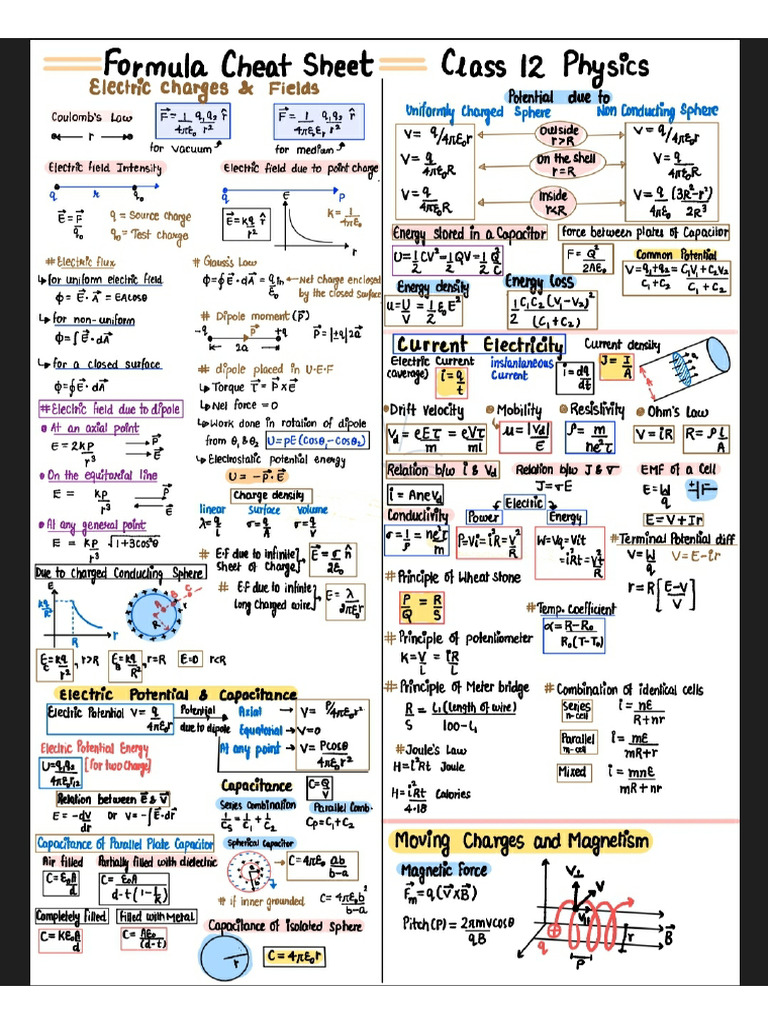 Formula Cheat Sheet
Class 12 Physics
Electric Charges & Fields
Coulomb's Law
r
F⃗ = 1/4πε₀ q₁q₂/r² r̂
for vacuum
F⃗ = 1/4πε₀εᵣ q₁q₂/r² r̂
for medium
Electric field Intensity
q r q₀
E⃗ = F⃗/q₀
q = Source charge
q₀ = Test charge
Electric field due to point charge
q P
E⃗ = kq/r² r̂
E
r
k = 1/4πε₀
# Electric flux
↳ for uniform electric field
ϕ = E⃗ · A⃗ = EA cosθ
↳ for non-uniform
ϕ = ∫E⃗ · dA⃗
↳ for a closed surface
ϕ = ∮E⃗ · dA⃗
# Gauss's Law
ϕ = ∮E⃗ · dA⃗ = qin/ε₀
Net charge enclosed
by the closed Surface
# Dipole moment (p⃗)
-q +q
2a
P⃗ = |±q| 2a⃗
# dipole placed in U.E.F
↳ Torque τ⃗ = P⃗ × E⃗
↳ Net force = 0
↳ Work done in rotation of dipole
from θ₁ & θ₂ U = pE (Cosθ₁ - Cosθ₂)
↳ Electrostatic potential energy
U = -P⃗ · E⃗
# Electric field due to dipole
At an axial point
E = 2kp/r³
P⃗
E⃗
On the equitorial line
E = kp/r³
P⃗
E⃗
At any general point
E = kp/r³ √1+3cos²θ
Charge density
linear surface volume
λ = q/L σ = q/A σ = q/V
# E·f due to infinite sheet of Charge
E⃗ = σ/2ε₀ n̂
# E·f due to infinite long charged wire
E = λ/2πε₀r
Due to Charged Conducting Sphere
E
kq/R²
R
r
E = kq/r², r>R
E = kq/R², r=R
E=0 r<R
Electric Potential & Capacitance
Electric Potential V = q/4πε₀r
Potential
due to dipole
Axial → V = P/4πε₀r²
Equatorial → V=0
At any point → V = Pcosθ/4πε₀r²
Electric Potential Energy
U = q₁q₂/4πε₀r₁₂
[for two Charge]
Relation between E⃗ & V⃗
E = -dv/dr or V = -∫E⃗·dr⃗
Capacitance
C = Q/V
Series Combination
1/Cs = 1/C₁ + 1/C₂
Parallel Comb.
Cp = C₁ + C₂
Capacitance of Parallel Plate Capacitor
Air filled
C = ε₀A/d
Partially filled with dielectric
C = ε₀A/d-t(1-1/K)
Completely filled
C = Kε₀A/d
Filled with Metal
C = Aε₀/(d-t)
Spherical Capacitor
C = 4πε₀ ab/b-a
# if inner grounded
C = 4πε₀ b²/b-a
Capacitance of isolated sphere
r
C = 4πε₀r
Potential due to
Uniformly Charged Sphere
Non Conducting Sphere
V = q/4πε₀r
Outside r>R
V = q/4πε₀r
V = q/4πε₀R
On the shell r=R
V = q/4πε₀R
V = q/4πε₀R
Inside r<R
V = q/4πε₀ (3R²-r²)/2R³
Energy stored in a Capacitor
U = 1/2 CV² = 1/2 QV = 1/2 Q²/C
force between plates of Capacitor
F = Q²/2Aε₀
Common Potential
V = q₁+q₂/C₁+C₂ = C₁V₁+C₂V₂/C₁+C₂
Energy density
u = U/V = 1/2 ε₀E²
Energy loss
1/2 C₁C₂(V₁-V₂)²/(C₁+C₂)
Current Electricity
Electric Current
(average)
i = q/t
instantaneous
Current
i = dq/dt
Current density
J = I/A
Drift Velocity
Vd = eEτ/m = eVτ/ml
Mobility
u = |Vd|/E
Resistivity
ρ = m/ne²τ
Ohm's Law
V = iR
R = ρL/A
Relation b/w i & Vd
i = AneVd
Relation b/w J & σ
J = σE
EMF of a Cell
E = W/q
E = V + Ir
Conductivity
σ = 1/ρ = ne²τ/m
Electric
Power
P=Vi=i²R=V²/R
Energy
W=Vq=Vit
=i²Rt=V²t/R
# Terminal Potential diff
V = W/q
V = E-ir
r = R[E-V/V]
# Principle of Wheat stone
P/Q = R/S
# Temp. Coefficient
α = R-R₀/R₀(T-T₀)
# Principle of potentiometer
K = V/L = iR/L
# Principle of Meter bridge
R/S = L₁(length of wire)/100-L₁
# Joule's Law
H = i²Rt Joule
H = i²Rt/4·18 Calories
# Combination of identical cells
Series
n-cell
i = nE/R+nr
Parallel
m-cell
i = mE/mR+r
Mixed
i = mnE/mR+nr
Moving Charges and Magnetism
Magnetic Force
F⃗m = q(V⃗×B⃗)
Pitch(P) = 2πmvcosθ/qB
V⊥
V
V∥
q
P
r
B⃗